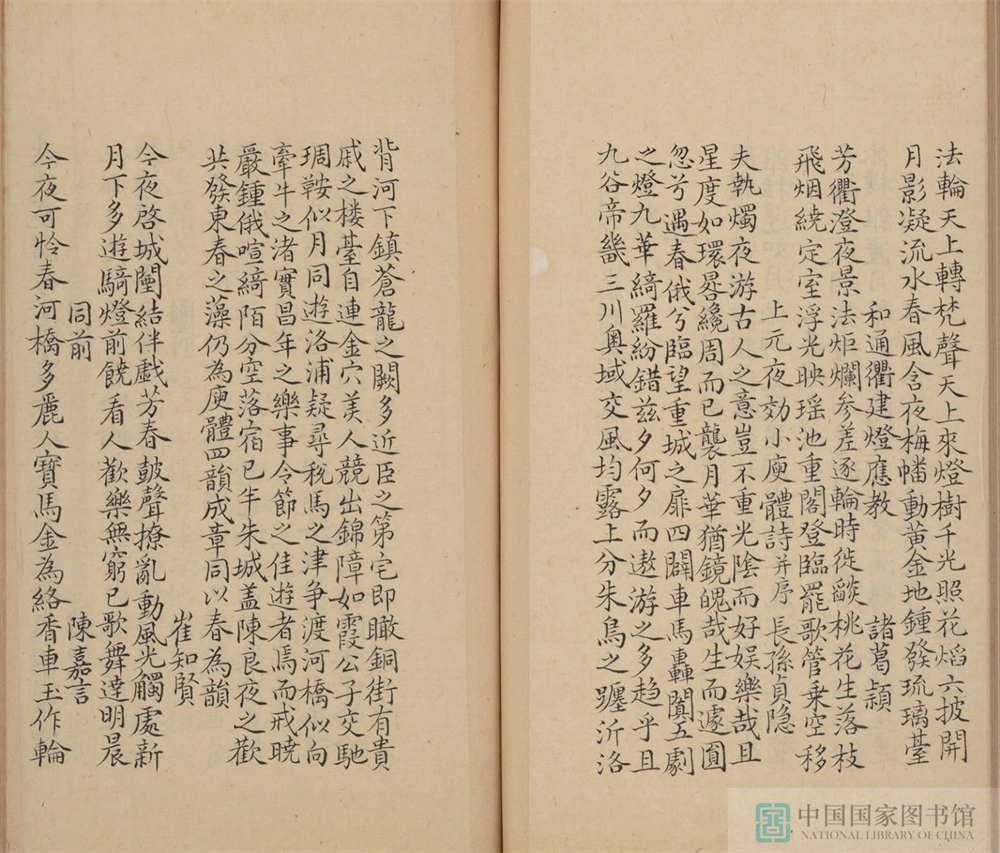 法輪天上轉梵聲天上來燈樹千光照花熖六披開
月影凝流水春風含夜梅幡動黃金地鍾發琉璃臺
和通衢建燈應教 諸葛潁
芳衢澄夜景法炬爛參差逐輪時徙燄桃花生落枝
飛烟繞定室浮光映瑤池重閣登臨罷歌管乗空移
上元夜効小庾體詩并序 長孫貞隐
夫執燭夜游古人之意豈不重光陰而好娯樂哉且
星度如環晷纔周而已襲月華猶鏡魄哉生而遽圓
忽兮遇春俄兮臨望重城之扉四闢車馬轟闐五劇
之燈九華綺羅紛錯兹夕何夕而遨游之多趋乎且
九谷帝畿三川奥域交風均露上分朱鳥之躔泝洛
背河下鎮蒼龍之闕多近臣之第宅即瞰銅街有貴
戚之楼臺自連金穴美人競出錦障如霞公子交馳
琱鞍似月同遊洛浦疑尋税馬之津爭渡河橋似向
牽牛之渚實昌年之樂事令節之佳遊者焉而戒曉
嚴鍾俄喧綺陌分空落宿已半朱城盖陳良夜之歡
共發東春之藻仍為庾體四韻成章同以春為韻
崔知賢
今夜啓城闉結伴戱芳春皷聲撩亂動風光觸處新
月下多遊騎燈前饒看人歡樂無窮已歌舞達明晨
同前 陳嘉言
今夜可怜春河橋多麗人寶馬金為絡香車玉作輪
中国国家图书馆
NATIONAL LIBRARY OF CHINA